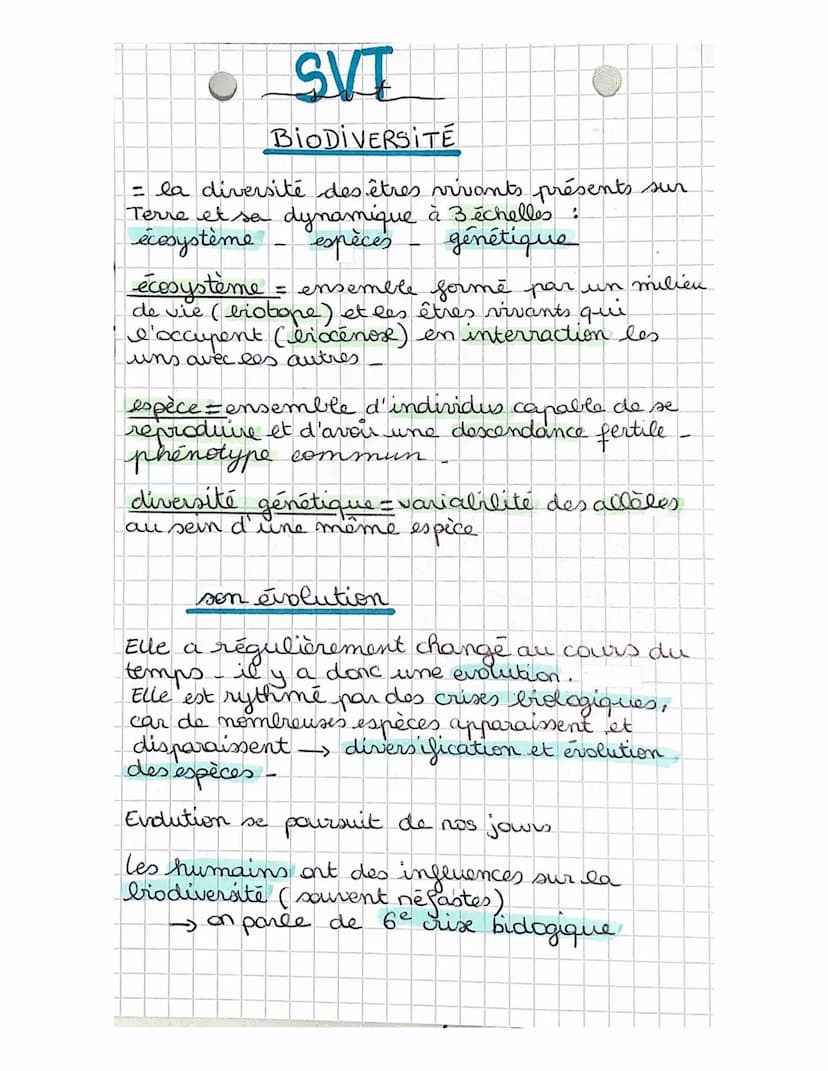 SVT
svt
BiODiVERSiTÉ
= la diversité des êtres vivants présents sur
Terre et sa dynamique à 3 échelles :
écosystème - espèces - génétique
écosystème = ensemble formé par un milieu
de vie (biotope) et les êtres vivants qui
l'occupent (biocénose) en interraction les
uns avec les autres -
espèce = ensemble d'individus capable de se
reproduire et d'avoir une descendance fertile -
phénotype commun -
diversité génétique = variabilité des allèles
au sein d'une même espèce
son évolution
Elle a régulièrement changé au cours du
temps - il y a donc une évolution.
Elle est rythmé par des crises biologiques,
car de nombreuses espèces apparaissent et
disparaissent → diversification et évolution
des espèces -
Evolution se poursuit de nos jours
Les humains ont des influences sur la
biodiversité (souvent néfastes)
→ on parle de 6e crise biologique